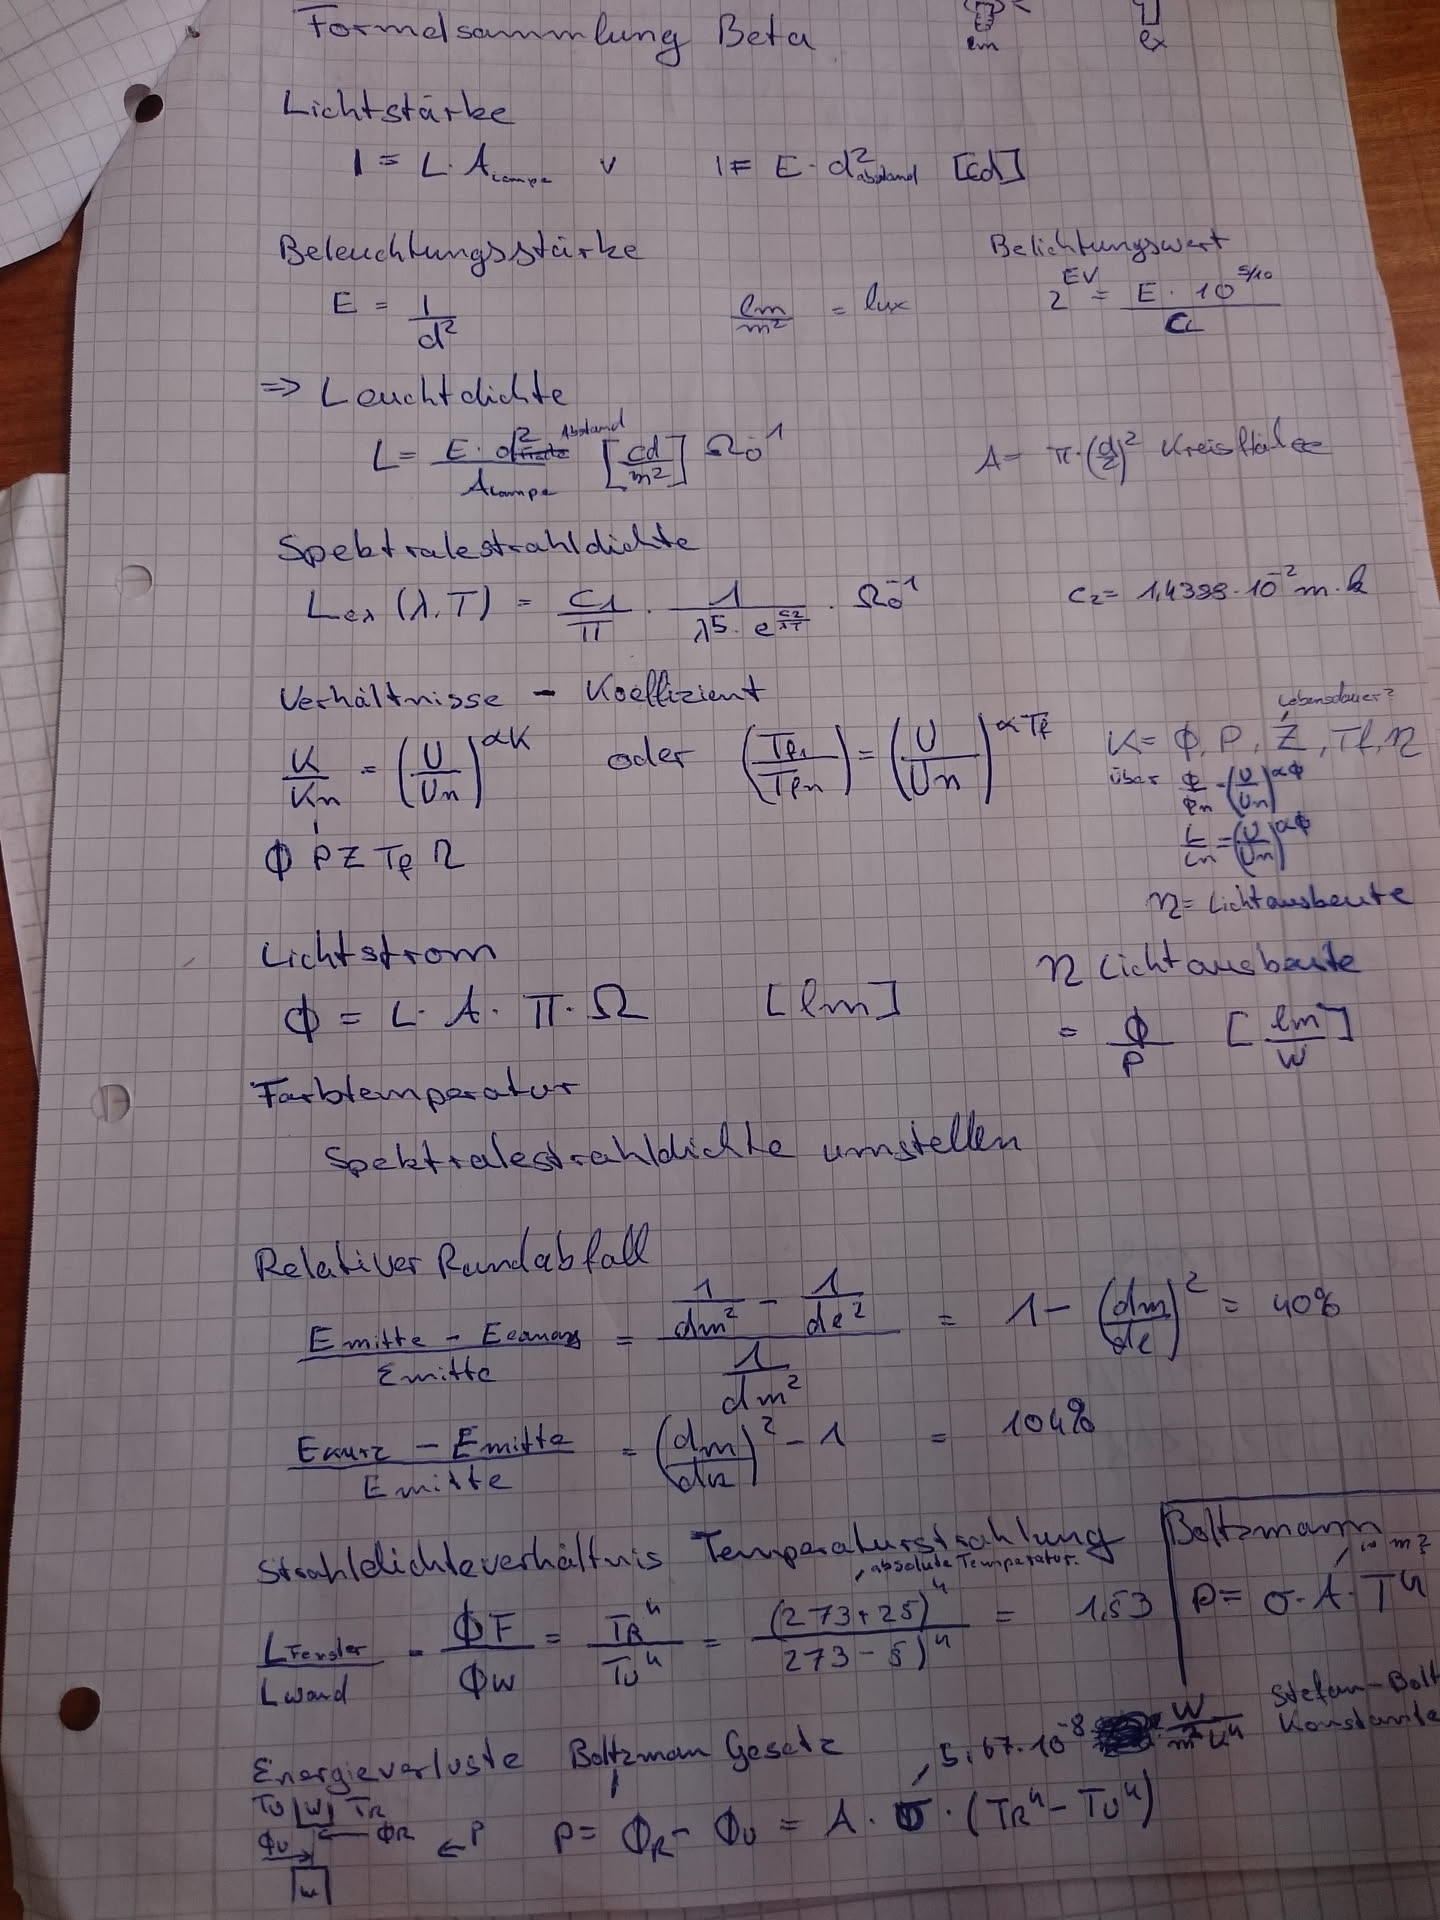 Formelsammlung Beta
lm
lx
Lichtstärke
I = L · A_Lampe v I = E · d²_abstand [cd]
Beleuchtungsstärke
E = I/d² lm/m² = lux
Belichtungswert
2^EV = (E · 10^(S/10))/C_L
=> Leuchtdichte
L = (E · d² Abstand)/A_Lampe [cd/m²] Ω₀⁻¹
A = π · (d/2)² Kreisfläche
Spektralestrahldichte
L_eλ (λ, T) = C1/π · 1/(λ⁵ · e^(C2/λT)) · Ω₀⁻¹ C₂ = 1,4388 · 10⁻² m · k
Verhältnisse - Koeffizient
K/Kn = (U/Un)^αK oder (Tf1/Tfn) = (U/Un)^αTf
Lebensdauer?
K = Φ, P, Z, Tf, η
über Φ/Φn = (U/Un)^αΦ
L/Ln = (U/Un)^αΦ
Φ P Z Tf η
η = Lichtausbeute
Lichtstrom
Φ = L · A · π · Ω [lm]
η Lichtausbeute
= Φ/P [lm/W]
Farbtemperatur
Spektralestrahldichte umstellen
Relativer Randabfall
(Emitte - Eeanang)/Emitte = (1/dm² - 1/de²)/(1/dm²) = 1 - (dm/de)² = 40%
(Ekurz - Emitte)/Emitte = (dm/dk)² - 1 = 104%
Strahldichteverhältnis Temperaturstrahlung
absolute Temperatur.
LFenster/Lwand = ΦF/ΦW = TR⁴/TU⁴ = (273+25)⁴/273-5)⁴ = 1,53
Boltzmann
in m²
P = σ · A · T⁴
Energieverluste Boltzman Gesetz
5,67 · 10⁻⁸ W/m²K⁴ Stefan-Bolt
Konstante
TU W TR
ΦU ΦR ← P
W
P = ΦR - ΦU = A · σ · (TR⁴ - TU⁴)